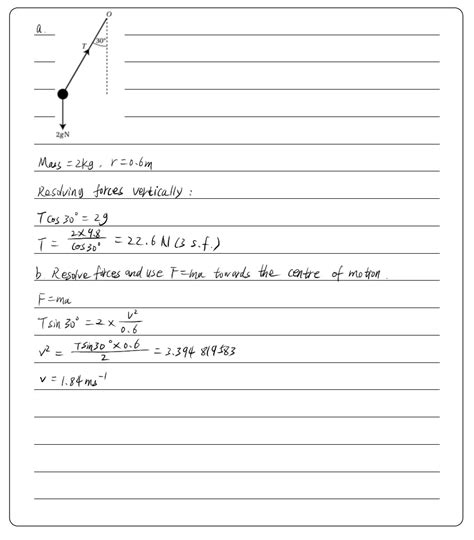 a.
O
T
30°
2gN
Mass = 2kg, r = 0.6m
Resolving forces vertically:
T cos 30° = 2g
T = \frac{2×9.8}{cos 30°} = 22.6 N (3 s.f.)
b Resolve forces and use F=ma towards the centre of motion.
F = ma
T sin 30° = 2 × \frac{v²}{0.6}
v² = \frac{T sin 30° × 0.6}{2} = 3.394 819583
v = 1.84 ms⁻¹